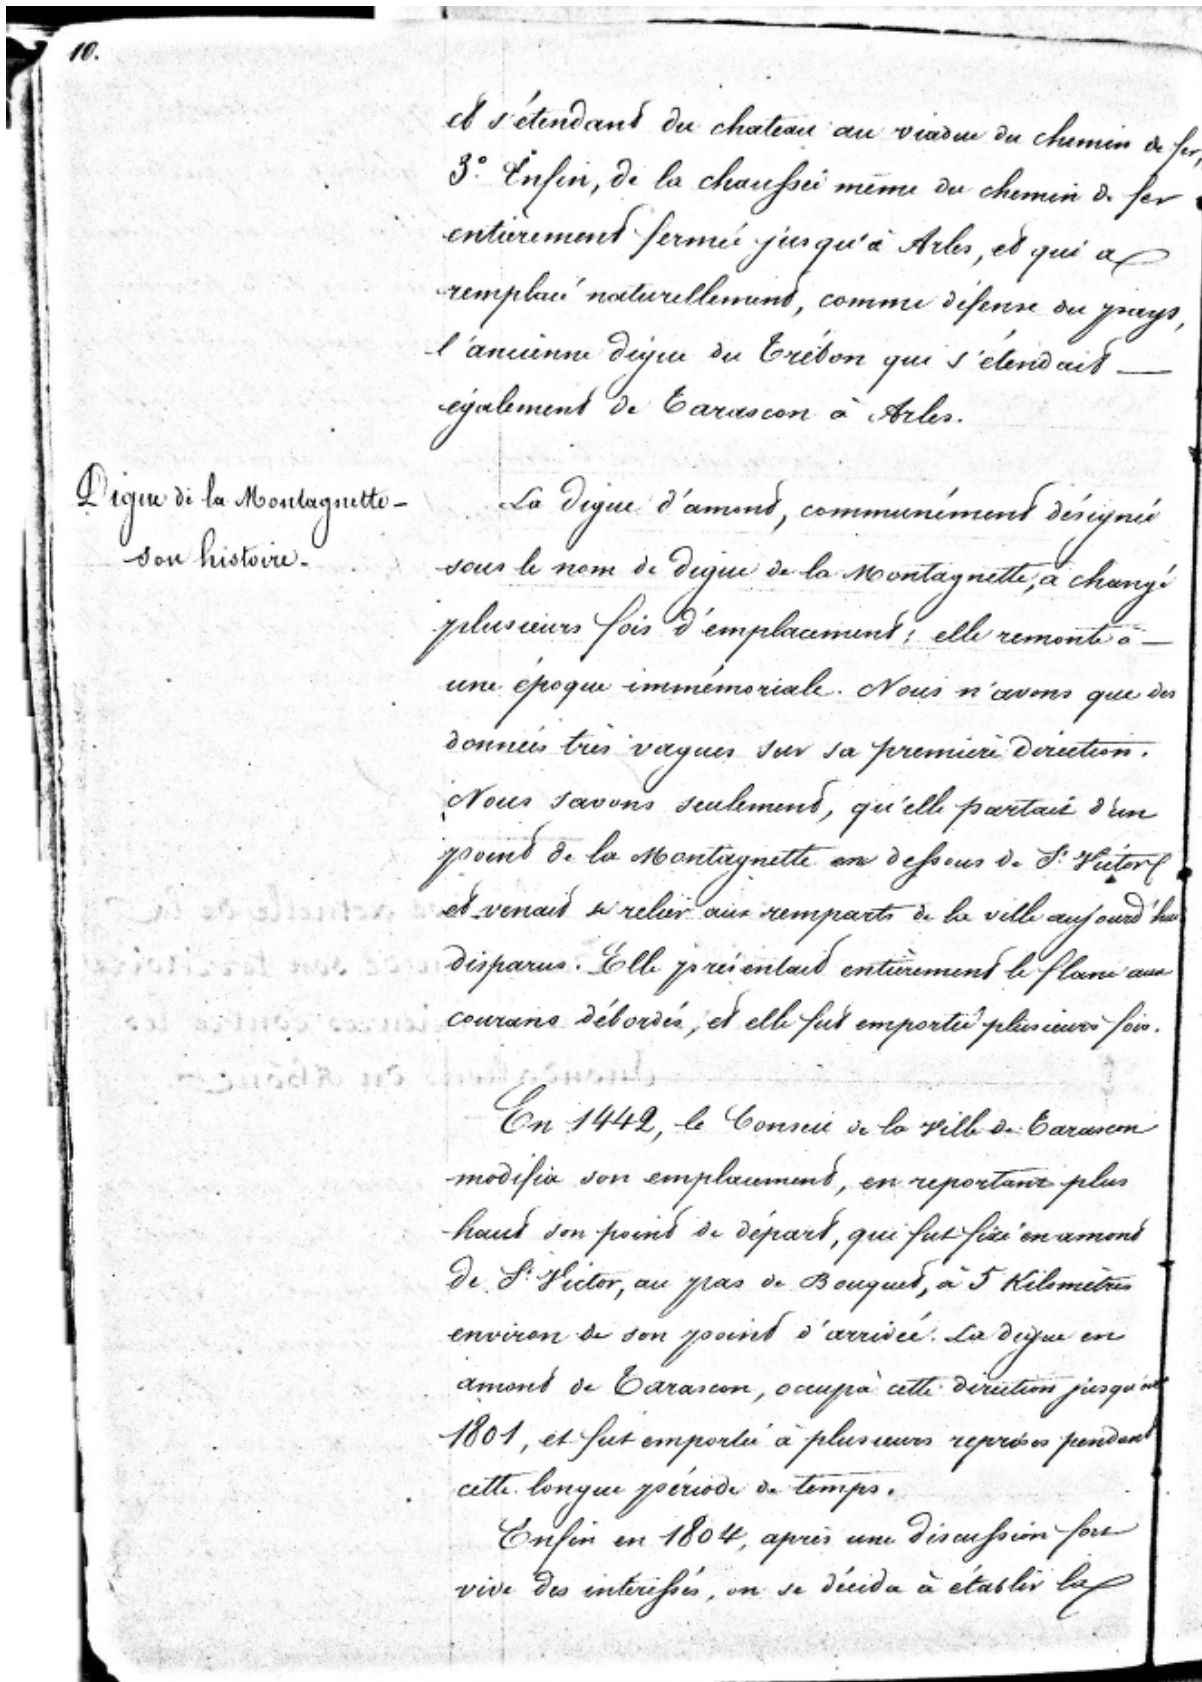 10.
et s'étendant du chateau au viaduc du chemin de fer,
3° Enfin, de la chaussée même du chemin de fer
entièrement fermée jusqu'à Arles, et qui a
remplacé naturellement, comme défense du pays,
l'ancienne digue du Trébon qui s'étendait —
également de Tarascon à Arles.
Digue de la Montagnette -
son histoire.
La digue d'amont, communément désignée
sous le nom de digue de la Montagnette, a changé
plusieurs fois d'emplacement; elle remonte à —
une époque immémoriale. Nous n'avons que des
données très vagues sur sa première direction.
Nous savons seulement, qu'elle partait d'un
point de la Montagnette en dessous de St Victor
et venait se relier aux remparts de la ville aujourd'hui
disparus. Elle présentait entièrement le flanc aux
courans débordés, et elle fut emportée plusieurs fois.
En 1442, le Conseil de la Ville de Tarascon
modifia son emplacement, en reportant plus
haut son point de départ, qui fut fixé en amont
de St Victor, au pas de Bouquet, à 5 Kilomètres
environ de son point d'arrivée. La digue en
amont de Tarascon, occupa cette direction jusqu'en
1801, et fut emportée à plusieurs reprises pendant
cette longue période de temps.
Enfin en 1804, après une discussion fort
vive des intéressés, on se décida à établir la